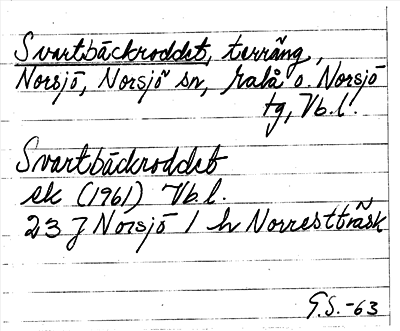 Svartbäckroddet, terräng,
Norsjö, Norsjö sn, Malå o. Norsjö
tg, Vb.l.
Svartbäckroddet
ek (1961) Vb.l.
23 J Norsjö 1 h Norrestträsk
G.S.-63